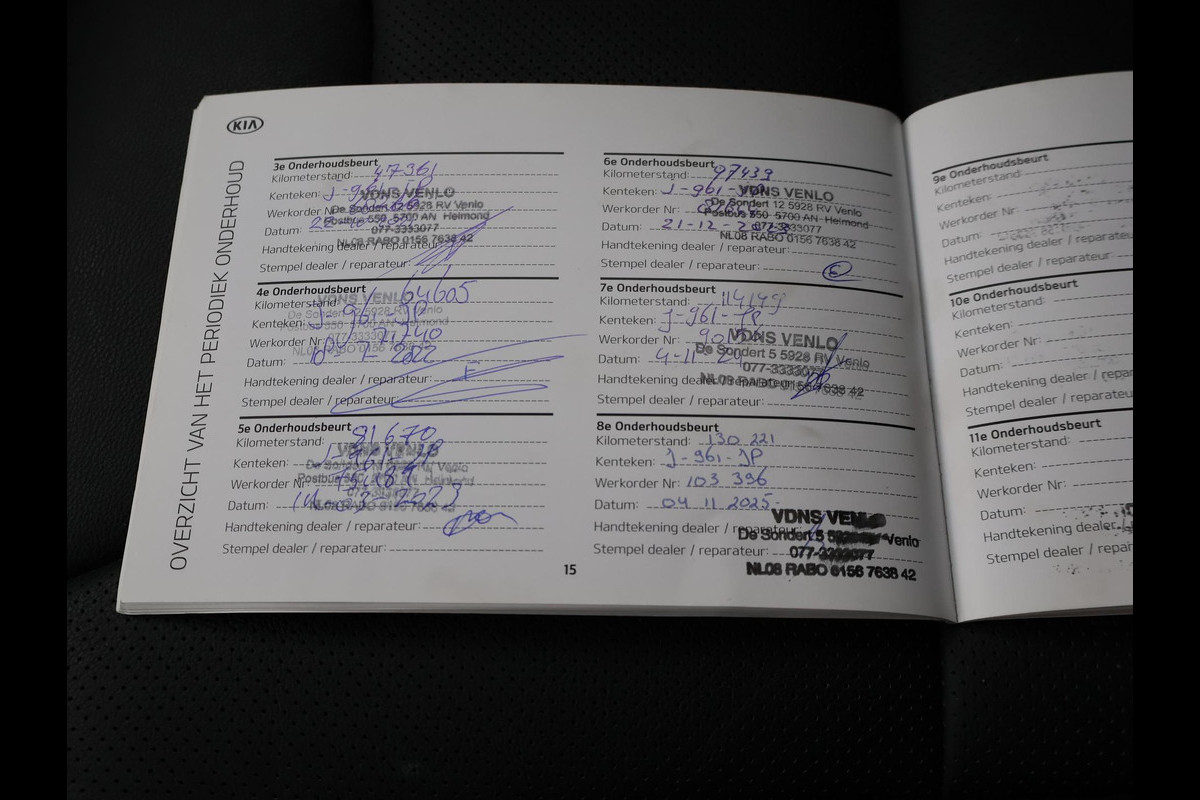 KIA
OVERZICHT VAN HET PERIODIEK ONDERHOUD
3e Onderhoudsbeurt
Kilometerstand: 47961
Kenteken: J-961-JP
Werkorder Nr:
Datum:
Handtekening dealer / reparateur:
Stempel dealer / reparateur:
VDNS VENLO
De Sondert 12 5928 RV Venlo
Postbus 550 5700 AN Helmond
077-3333077
NL08 RABO 0156 7638 42
4e Onderhoudsbeurt
Kilometerstand: 64605
Kenteken: J-961-JP
Werkorder Nr:
Datum:
Handtekening dealer / reparateur:
Stempel dealer / reparateur:
VDNS VENLO
De Sondert 12 5928 RV Venlo
Postbus 550 5700 AN Helmond
5e Onderhoudsbeurt
Kilometerstand: 81670
Kenteken:
Werkorder Nr:
Datum:
Handtekening dealer / reparateur:
Stempel dealer / reparateur:
VDNS VENLO
6e Onderhoudsbeurt
Kilometerstand: 97439
Kenteken: J-961-JP
Werkorder Nr:
Datum: 21-12-
Handtekening dealer / reparateur:
Stempel dealer / reparateur:
VDNS VENLO
De Sondert 12 5928 RV Venlo
Postbus 550 5700 AN Helmond
077-3333077
NL08 RABO 0156 7638 42
7e Onderhoudsbeurt
Kilometerstand:
Kenteken: J-961-JP
Werkorder Nr:
Datum: 4-11-24
Handtekening dealer / reparateur:
Stempel dealer / reparateur:
VDNS VENLO
De Sondert 5 5928 RV Venlo
077-3333077
NL08 RABO 0156 7638 42
8e Onderhoudsbeurt
Kilometerstand: 130 221
Kenteken: J-961-JP
Werkorder Nr: 103 396
Datum: 04 11 2025
Handtekening dealer / reparateur:
Stempel dealer / reparateur:
VDNS VENLO
De Sondert 5 5928 RV Venlo
077-3333077
NL08 RABO 0156 7638 42
15
9e Onderhoudsbeurt
Kilometerstand:
Kenteken:
Werkorder Nr:
Datum:
Handtekening dealer / reparateur
Stempel dealer / reparateur:
10e Onderhoudsbeurt
Kilometerstand:
Kenteken:
Werkorder Nr:
Datum:
Handtekening dealer / repara
Stempel dealer / reparat
11e Onderhoudsbeurt
Kilometerstand:
Kenteken:
Werkorder Nr:
Datum:
Handtekening dealer
Stempel dealer / repar